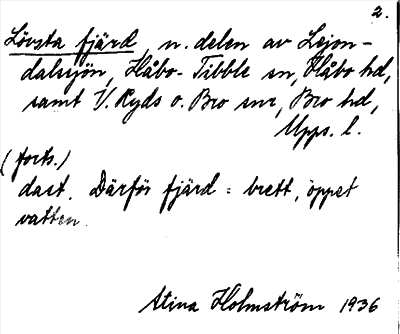 2.
Lövsta fjärd, n. delen av Lejon-
dalsjön, Håbo-Tibble sn, Håbo hd,
samt V. Ryds o. Bro snr, Bro hd,
Upps. l.
(forts.)
dast. Därför fjärd = brett, öppet
vatten.
Stina Holmström 1936